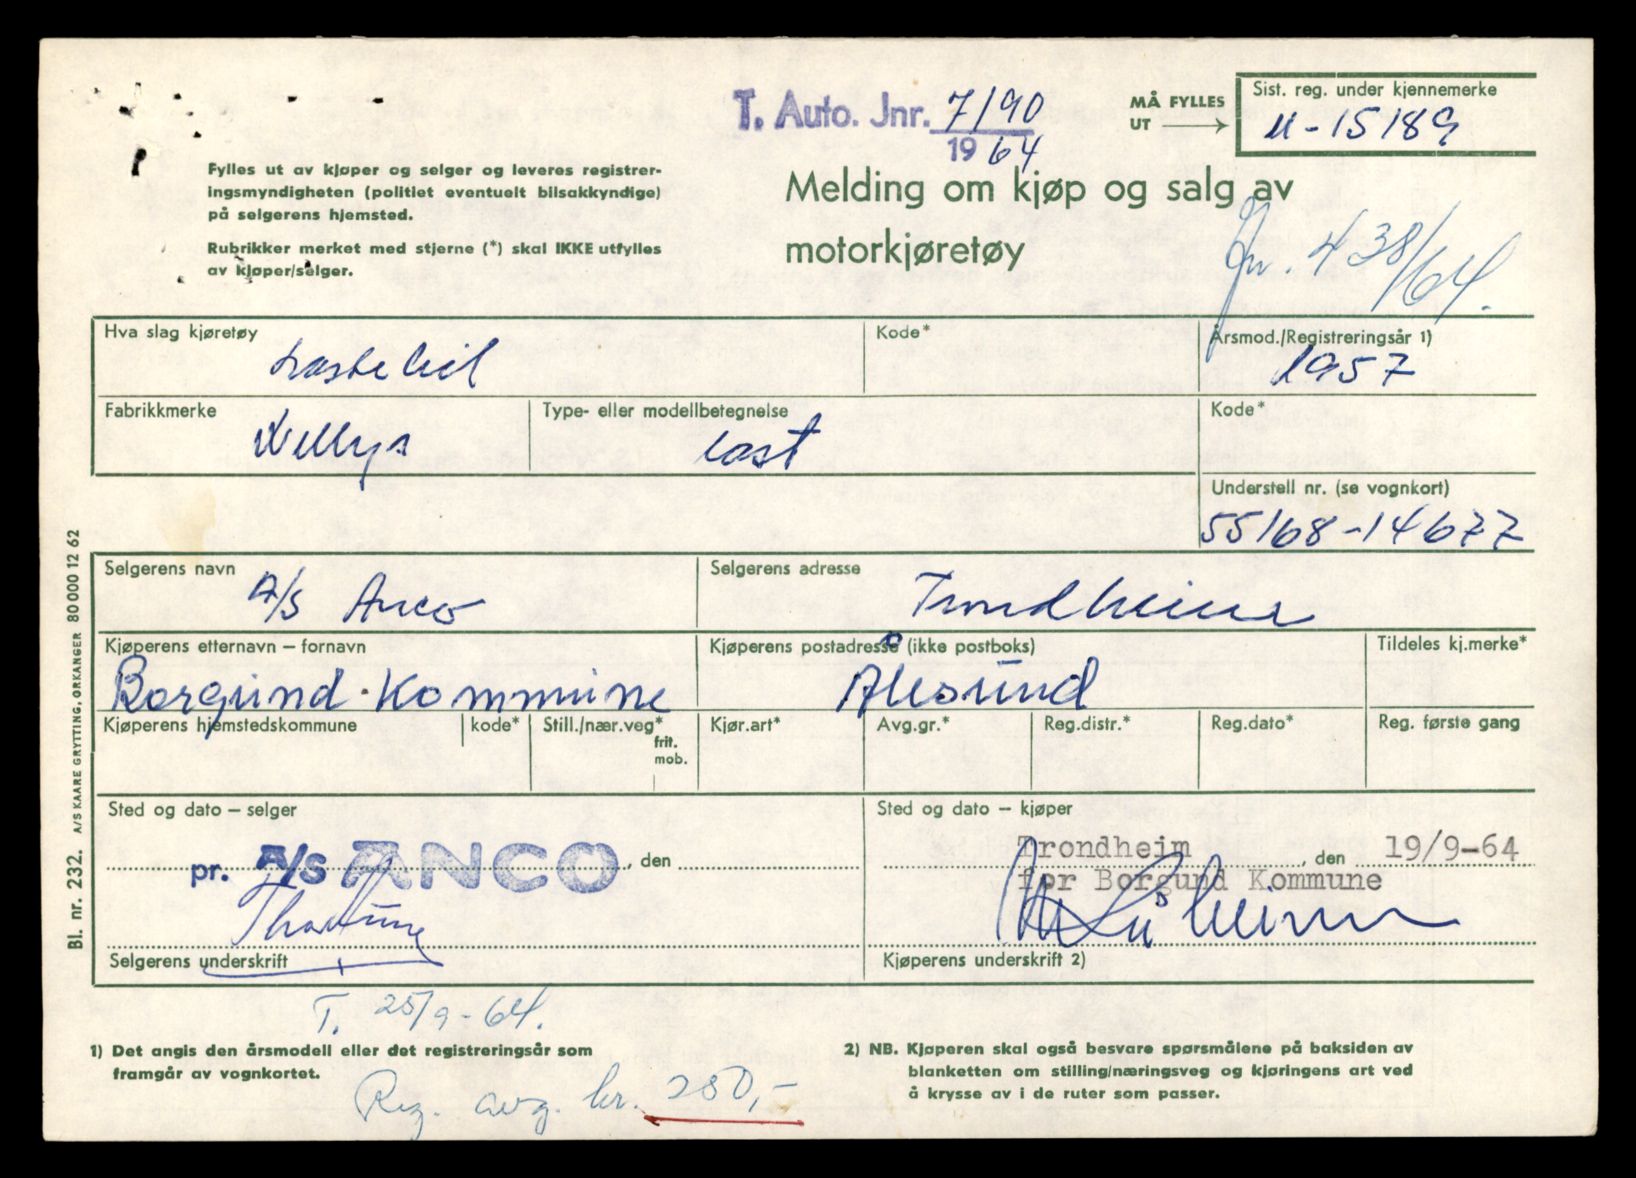 T. Auto. Jnr. 7190
1964
MÅ FYLLES
UT
Sist. reg. under kjennemerke
U-15189
Fylles ut av kjøper og selger og leveres registrer-
ingsmyndigheten (politiet eventuelt bilsakkyndige)
på selgerens hjemsted.
Rubrikker merket med stjerne (*) skal IKKE utfylles
av kjøper/selger.
Melding om kjøp og salg av
motorkjøretøy
Jnr. 438/64.
Hva slag kjøretøy
Lastebil
Kode*
Årsmod./Registreringsår 1)
1957
Fabrikkmerke
Willys
Type- eller modellbetegnelse
Last
Kode*
Understell nr. (se vognkort)
55168-14677
Selgerens navn
A/S Anco
Selgerens adresse
Trondheim
Kjøperens etternavn – fornavn
Borgund Kommune
Kjøperens postadresse (ikke postboks)
Ålesund
Tildeles kj.merke*
Kjøperens hjemstedskommune
kode*
Still./nær.veg*
frit.
mob.
Kjør.art*
Avg.gr.*
Reg.distr.*
Reg.dato*
Reg. første gang
Sted og dato – selger
pr. A/S ANCO, den
Selgerens underskrift
Sted og dato – kjøper
Trondheim, den 19/9-64
for Borgund Kommune
Kjøperens underskrift 2)
T. 25/9-64.
1) Det angis den årsmodell eller det registreringsår som
framgår av vognkortet.
Reg. avg. kr. 280,-
2) NB. Kjøperen skal også besvare spørsmålene på baksiden av
blanketten om stilling/næringsveg og kjøringens art ved
å krysse av i de ruter som passer.
Bl. nr. 232. A/S KAARE GRYTTING, ORKANGER 80 000 12 62